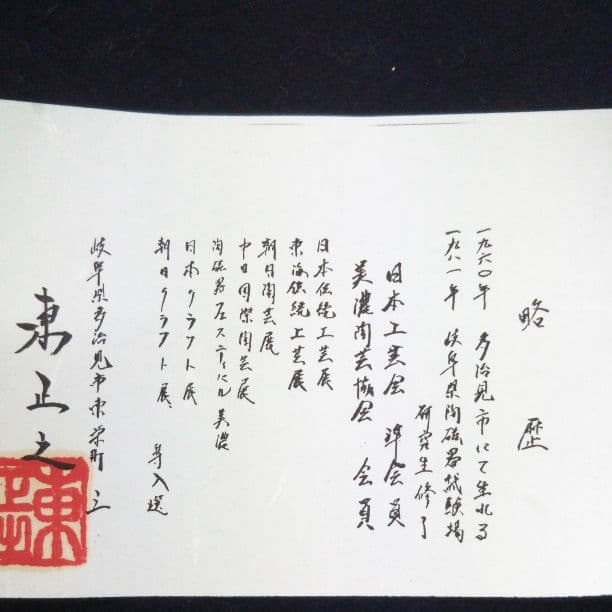 略歴
一九六〇年 多治見市にて生れる
一九八一年 岐阜県陶磁器試験場
研究生修了
日本工芸会 準会員
美濃陶芸協会 会員
日本伝統工芸展
東海伝統工芸展
朝日陶芸展
中日国際陶芸展
陶磁器フェスティバル美濃
日本クラフト展
朝日クラフト展、 等入選
岐阜県多治見市東栄町 三
東正之